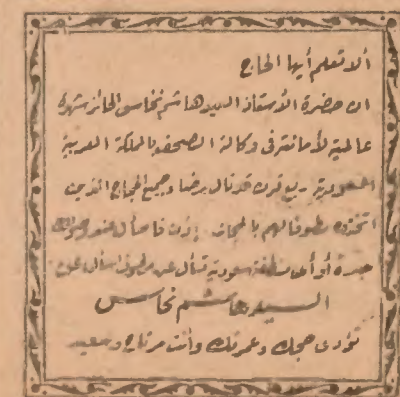 ألا تعلم أيها الحاج
ان حضرة الأستاذ السيد هاشم نحاس الحائز شهرة
عالمية لأمانته في وكالة الصحف بالمملكة العربية
السعودية ربع قرن قد نال رضاء جميع الحجاج الذين
اتخذوه مطوفا لهم بالحجاز إذن فاسأل عنه وصولك
جدة أو أي منطقة سعودية تسأل عن مطوفك اسأل عن
السيد هاشم نحاس
تؤدى حجك وعمرتك وأنت مرتاح وسعيد